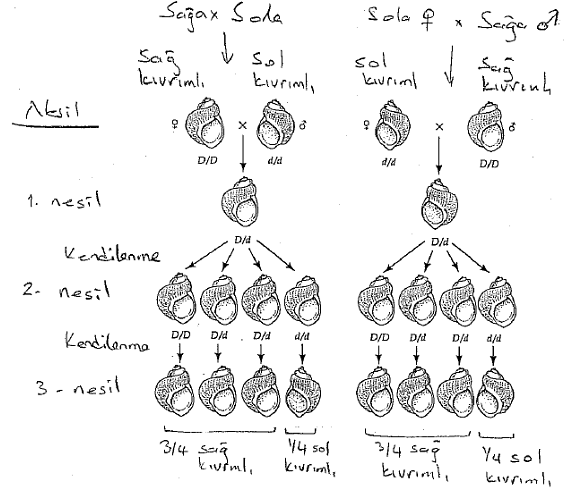 Sağa x Sola
Sola ♀ x Sağa ♂
sağ kıvrımlı
sol kıvrımlı
sol kıvrımlı
sağ kıvrımlı
♀ x ♂
♀ x ♂
D/D d/d
d/d D/D
1. nesil
D/d D/d
Kendilenme
2- nesil
D/D D/d D/d d/d
D/D D/d D/d d/d
Kendilenme
3- nesil
3/4 sağ kıvrımlı
1/4 sol kıvrımlı
3/4 sağ kıvrımlı
1/4 sol kıvrımlı